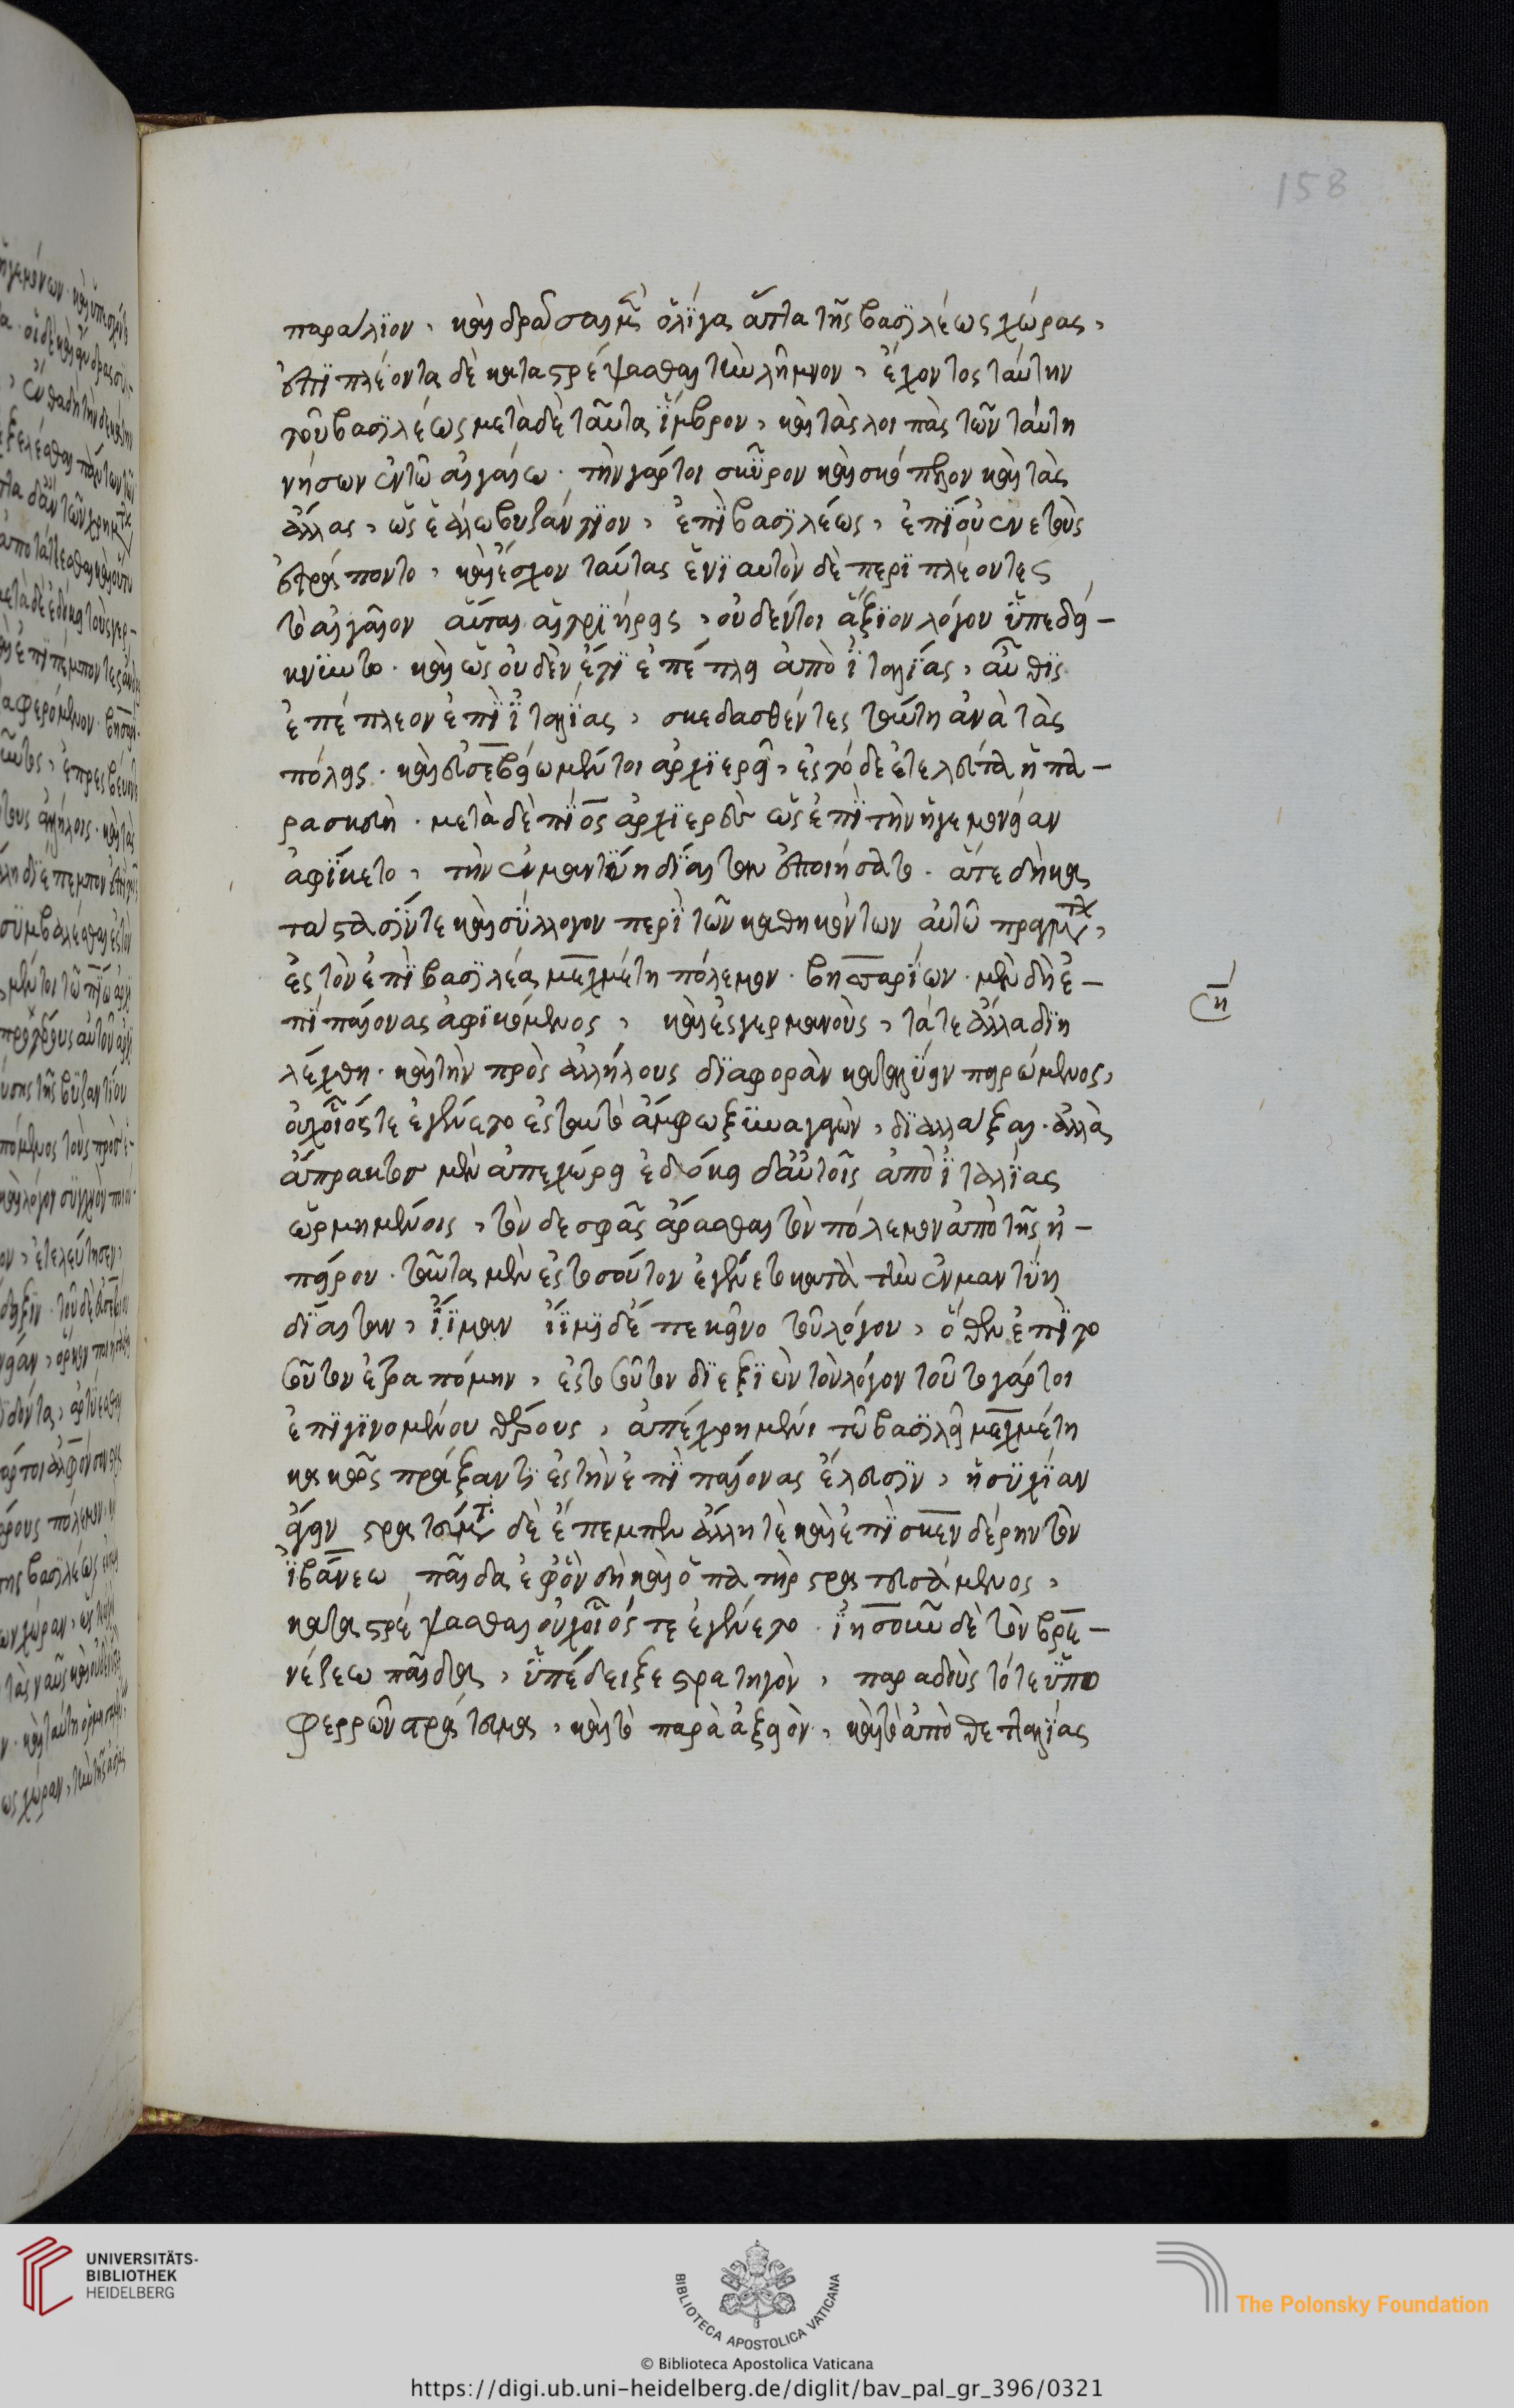 158
παράλιον, καὶ δράσαι μὲν ὀλίγα ἄττα τῆς βασιλέως χώρας,
ἐπιπλέοντα δὲ καταστρέψασθαι τὴν λῆμνον, ἔχοντος ταύτην
τοῦ βασιλέως μετὰ δὲ ταῦτα ἴμβρον, καὶ τὰς λοιπὰς τῶν ταύτῃ
νήσων ἐν τῶ αἰγαίω. τὴν γάρ τοι σκῦρον καὶ σκόπελον καὶ τὰς
ἄλλας, ὡς ἑάλω βυζάντιον, ἐπὶ βασιλέως, ἐπὶ οὐενετοὺς
ἐτράποντο, καὶ ἔσχον ταύτας ἐνιαυτὸν δὲ περιπλέοντες
τὸ αἰγαῖον αὗται αἱ τριήρεις, οὐδέν τοι ἄξιον λόγου ὑπεδεί-
κνυντο. καὶ ὡς οὐδὲν ἔτι ἐπέπλει ἀπὸ ἰταλίας, αὖθις
ἐπέπλεον ἐπὶ ἰταλίας, σκεδασθέντες ταύτῃ ἀνὰ τὰς
πόλεις. καὶ εὐσεβείω μέντοι ἀρχιερεῖ, ἐς τόδε ἐτελεύτα ἡ πα-
ρασκευή. μετὰ δὲ πῖος ἀρχιερεὺς ὡς ἐπὶ τὴν ἡγεμονείαν
ἀφίκετο, τὴν ἐν μαντύῃ δίαιταν ἐποιήσατο. ἅτε δὴ κα
τάστασίν τε καὶ σύλλογον περὶ τῶν καθηκόντων αὐτῶ πραγμάτων,
ἐς τὸν ἐπὶ βασιλέα μεχμέτη πόλεμον. βησσαρίων μὲν δὴ ἐ-
πὶ παίονας ἀφικόμενος, καὶ ἐς γερμανοὺς, τά τε ἄλλα διη
λέχθη. καὶ τὴν πρὸς ἀλλήλους διαφορὰν καταλύειν πειρώμενος,
οὐχ οἷός τε ἐγένετο ἐς ταυτὸ ἄμφω ξυναγαγὼν, διαλλάξαι. ἀλλὰ
ἄπρακτον μὲν ἀπεχώρει ἐδόκει δ' αὐτοῖς ἀπὸ ἰταλίας
ὡρμημένοις, τόν δε σφᾶς ἄρασθαι τὸν πόλεμον ἀπὸ τῆς ἠ-
πείρου. ταῦτα μὲν ἐς τοσοῦτον ἐγένετο κατὰ τὴν ἐν μαντύῃ
δίαιταν, ὅθεν ἐπὶ το
τοῦτον διεξιὼν τὸν λόγον τοῦτο γάρ τοι
ἐπιγινομένου θέρους, ἀπέχρη μένοι τῶ βασιλεῖ μεχμέτη
κακῶς πράξαντι ἐς τὴν ἐπὶ παίονας ἔλασιν, ἡσυχίαν
ἄγειν στράτευμα δὲ ἔπεμπεν ἄλλῃ τὲ καὶ ἐπὶ σκενδέρην τὸν
ἰβάνεω παῖδα ἐφ' ὃν δὴ καὶ ὁ πατὴρ στρατευσάμενος,
καταστρέψασθαι οὐχ οἷός τε ἐγένετο. ἰησοῦν δὲ τὸν βρε-
νέζεω παῖδα, ὑπέδειξε στρατηγὸν, παραδοὺς τό τε ὑπὸ
φερρῶν στράτευμα, καὶ τὸ παρὰ ἀξειὸν, καὶ τὸ ἀπὸ θετταλίας
UNIVERSITÄTS-
BIBLIOTHEK
HEIDELBERG
BIBLIOTECA APOSTOLICA VATICANA
The Polonsky Foundation
© Biblioteca Apostolica Vaticana
https://digi.ub.uni-heidelberg.de/diglit/bav_pal_gr_396/0321